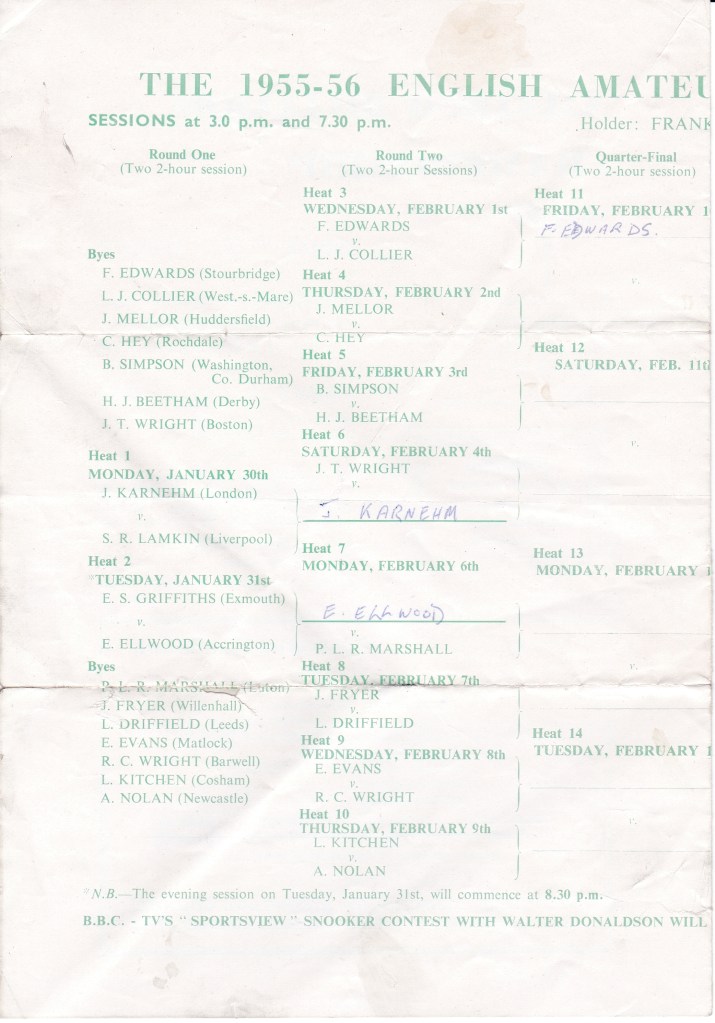 THE 1955-56 ENGLISH AMATEU
SESSIONS at 3.0 p.m. and 7.30 p.m.
Holder: FRANK
Round One
(Two 2-hour session)
Byes
F. EDWARDS (Stourbridge)
L. J. COLLIER (West.-s.-Mare)
J. MELLOR (Huddersfield)
C. HEY (Rochdale)
B. SIMPSON (Washington,
Co. Durham)
H. J. BEETHAM (Derby)
J. T. WRIGHT (Boston)
Heat 1
MONDAY, JANUARY 30th
J. KARNEHM (London)
v.
S. R. LAMKIN (Liverpool)
Heat 2
*TUESDAY, JANUARY 31st
E. S. GRIFFITHS (Exmouth)
v.
E. ELLWOOD (Accrington)
Byes
P. L. R. MARSHALL (Luton)
J. FRYER (Willenhall)
L. DRIFFIELD (Leeds)
E. EVANS (Matlock)
R. C. WRIGHT (Barwell)
L. KITCHEN (Cosham)
A. NOLAN (Newcastle)
Round Two
(Two 2-hour Sessions)
Heat 3
WEDNESDAY, FEBRUARY 1st
F. EDWARDS
v.
L. J. COLLIER
Heat 4
THURSDAY, FEBRUARY 2nd
J. MELLOR
v.
C. HEY
Heat 5
FRIDAY, FEBRUARY 3rd
B. SIMPSON
v.
H. J. BEETHAM
Heat 6
SATURDAY, FEBRUARY 4th
J. T. WRIGHT
v.
J. KARNEHM
Heat 7
MONDAY, FEBRUARY 6th
E. ELLWOOD
v.
P. L. R. MARSHALL
Heat 8
TUESDAY, FEBRUARY 7th
J. FRYER
v.
L. DRIFFIELD
Heat 9
WEDNESDAY, FEBRUARY 8th
E. EVANS
v.
R. C. WRIGHT
Heat 10
THURSDAY, FEBRUARY 9th
L. KITCHEN
v.
A. NOLAN
Quarter-Final
(Two 2-hour session)
Heat 11
FRIDAY, FEBRUARY 1
F. EDWARDS.
v.
Heat 12
SATURDAY, FEB. 11th
v.
Heat 13
MONDAY, FEBRUARY 1
v.
Heat 14
TUESDAY, FEBRUARY 1
v.
*N.B.—The evening session on Tuesday, January 31st, will commence at 8.30 p.m.
B.B.C. - TV'S "SPORTSVIEW" SNOOKER CONTEST WITH WALTER DONALDSON WILL